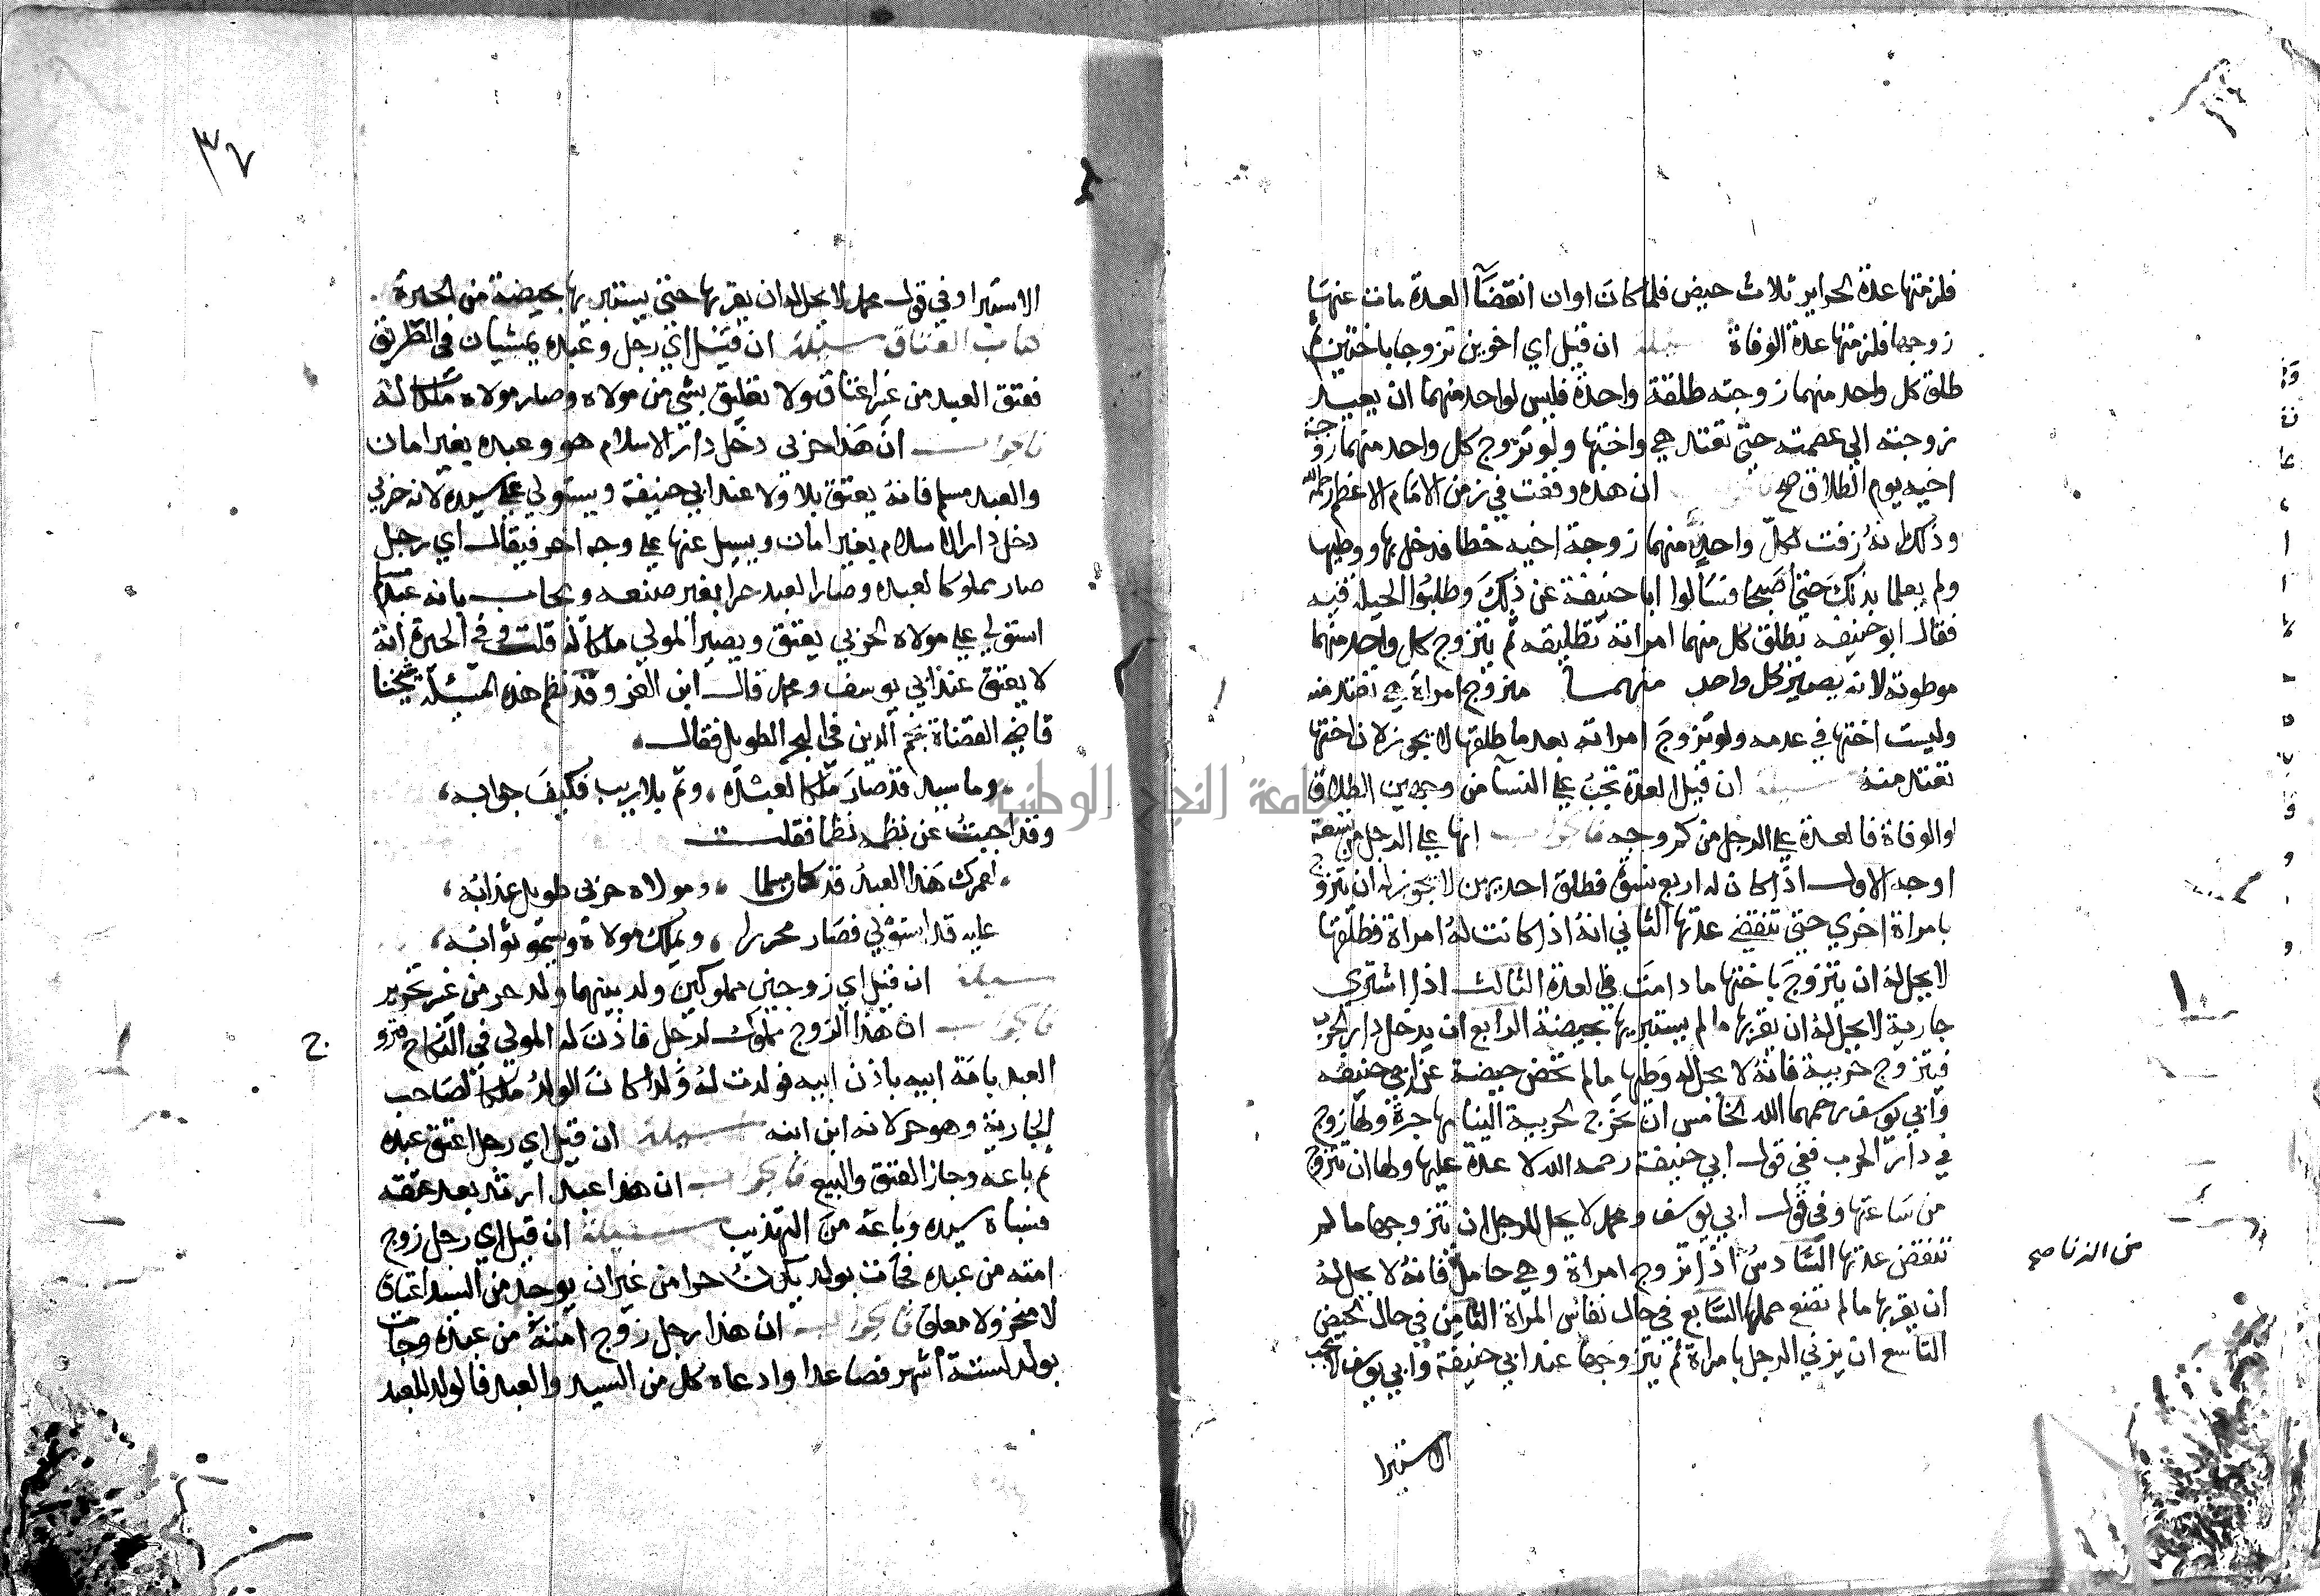 فلزمتها عدة الحراير ثلاث حيض فلما كان اوان انقضآ العدة مات عنها
زوجها فلزمتها عدة الوفاة مسيلة ان قيل اي اخوين تزوجا باختين ثم
طلق كل واحد منهما زوجته طلقة واحدة فليس لواحد منهما ان يعيد
زوجته الي عصمته حتى تعتد هي واختها ولو تزوج كل واحد منهما زوجة
اخيه يوم الطلاق صح ان هذه وقعت في زمن الامام الاعظم رحمه الله
وذلك انه زفت لكل واحد منهما زوجة اخيه خطا فدخل بها ووطيها
ولم يعلما بذلك حتى اصبحا فسالوا ابا حنيفة عن ذلك وطلبوا الحيلة فيه
فقال ابو حنيفه تطلق كل منهما امراته تطليقه ثم يتزوج كل واحد منهما
موطوته لانه يصير كل واحد منهما متزوج امراة هي تعتد منه
وليست اختها في عدمه ولو تزوج امراته بعد ما طلقها لا يجوز لان اختها
تعتد منه مسيلة ان قيل العدة تجب علي النسآ من وجهين الطلاق
والوفاة فالعدة علي الرجل من كم وجه فالجواب انها علي الرجل من تسعة
اوجه الاول اذا كان له اربع نسوة فطلق احديهن لا يجوز له ان يتزوج
بامراة اخري حتى تنقضي عدتها الثاني انه اذا كانت له امراة فطلقها
لا يحل له ان يتزوج باختها ما دامت في العدة الثالث اذا اشتري
جارية لا يحل له ان يقربها ما لم يستبريها بحيضة الرابع ان يدخل دار الحرب
فيتزوج حربية فانه لا يحل له وطيها ما لم تحض حيضة عند ابي حنيفه
وابي يوسف رحمهما الله الخامس ان تخرج الحربية الينا مهاجرة ولها زوج
في دار الحرب ففي قول ابي حنيفة رحمه الله لا عدة عليها ولها ان تتزوج
من ساعتها وفي قول ابي يوسف ومحمد لا يحل للرجل ان يتزوجها ما لم
تنقض عدتها السادس اذا تزوج امراة وهي حامل فانه لا يحل له
من الزنا صح
ان يقربها ما لم تضع حملها السابع في حال نفاس المراة الثامن في حال الحيض
التاسع ان يزني الرجل بامراة ثم يتزوجها عند ابي حنيفة وابي يوسف لا يجب
الاستبرا
٣٧
الاستبرا وفي قول محمد لا يحل له ان يقربها حتى يستبريها بحيضة من الحيرة
كتاب العتاق مسيلة ان قيل اي رجل وعبده يمشيان في الطريق
فعتق العبد من غير اعتاق ولا تعليق بشي من مولاه وصار مولاه ملكا له
فالجواب ان هذا حربي دخل دار الاسلام هو وعبده بغير امان
والعبد مسلم فانه يعتق بلا ولا عند ابي حنيفة ويستولي علي سيده لانه حربي
دخل دار الاسلام بغير امان ويسيل عنها علي وجه اخر فيقال اي رجل
صار مملوكا لعبده وصار العبد حرا بغير صنعه ويجاب بانه عبد مسلم
استولي علي مولاه الحربي يعتق ويصير المولي ملكا له قلت وفي الحيرة انه
لا يعتق عند ابي يوسف ومحمد قال ابن العز وقد نظم هذه المسئلة شيخنا
قاضي القضاة نجم الدين في البحر الطويل فقال
وما سيد قد صار ملكا لعبده وتم بلا ريب فكيف جوابه
وقد اجبت عن نظمه نظما فقلت
لعمرك هذا العبد قد كان مسلما ومولاه حربي طويل عذابه
عليه قد استولي فصار محررا ويملك مولاه وينمو ثوابه
مسيلة ان قيل اي زوجين مملوكين ولد بينهما ولد حر من غير تحرير
فالجواب ان هذا الزوج مملوك لرجل فاذن له المولي في النكاح فتزوج
العبد بامة ابيه باذن ابيه فولدت له ولدا كان الولد ملكا لصاحب
الجارية وهو حر لانه ابن ابنه مسيلة ان قيل اي رجل اعتق عبده
ثم باعه وجاز العتق والبيع فالجواب ان هذا عبد ارتد بعد عتقه
فسباه سيده وباعه من التهذيب مسيلة ان قيل اي رجل زوج
امته من عبده فجآت بولد يكون حرا من غير ان يوجد من السيد اعتاق
لا منجز ولا معلق فالجواب ان هذا رجل زوج امته من عبده وجات
بولد لستة اشهر فصاعدا وادعاه كل من السيد والعبد فالولد للعبد
جامعة النجاح الوطنية